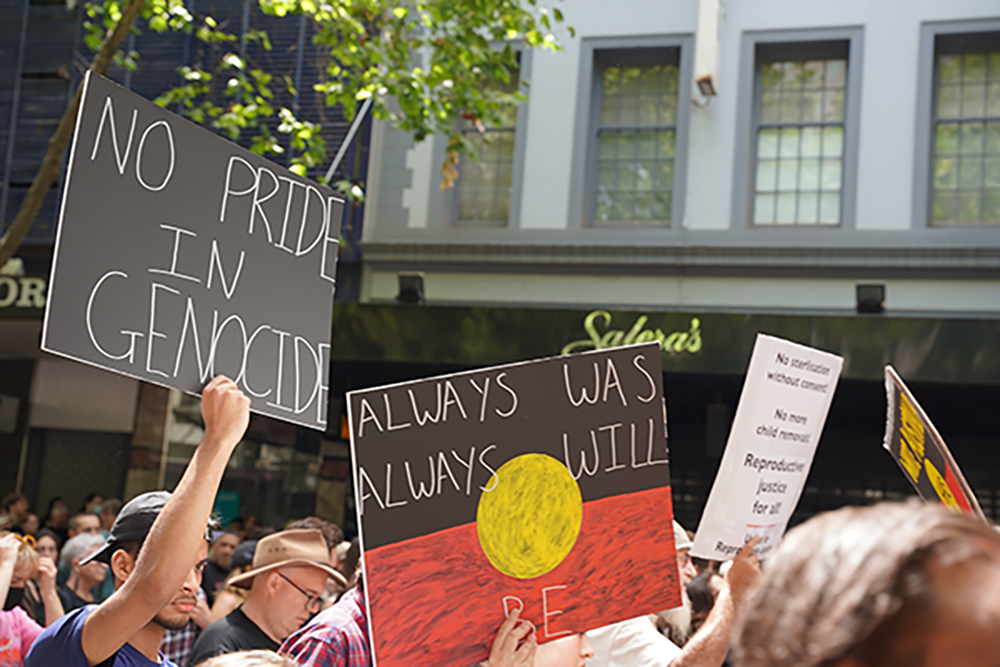 NO PRIDE
IN
GENOCIDE
OR
Salera's
ALWAYS WAS
ALWAYS WILL
BE
No sterilisation
without consent!
No more
child removal!
Reproductive
justice
for all!